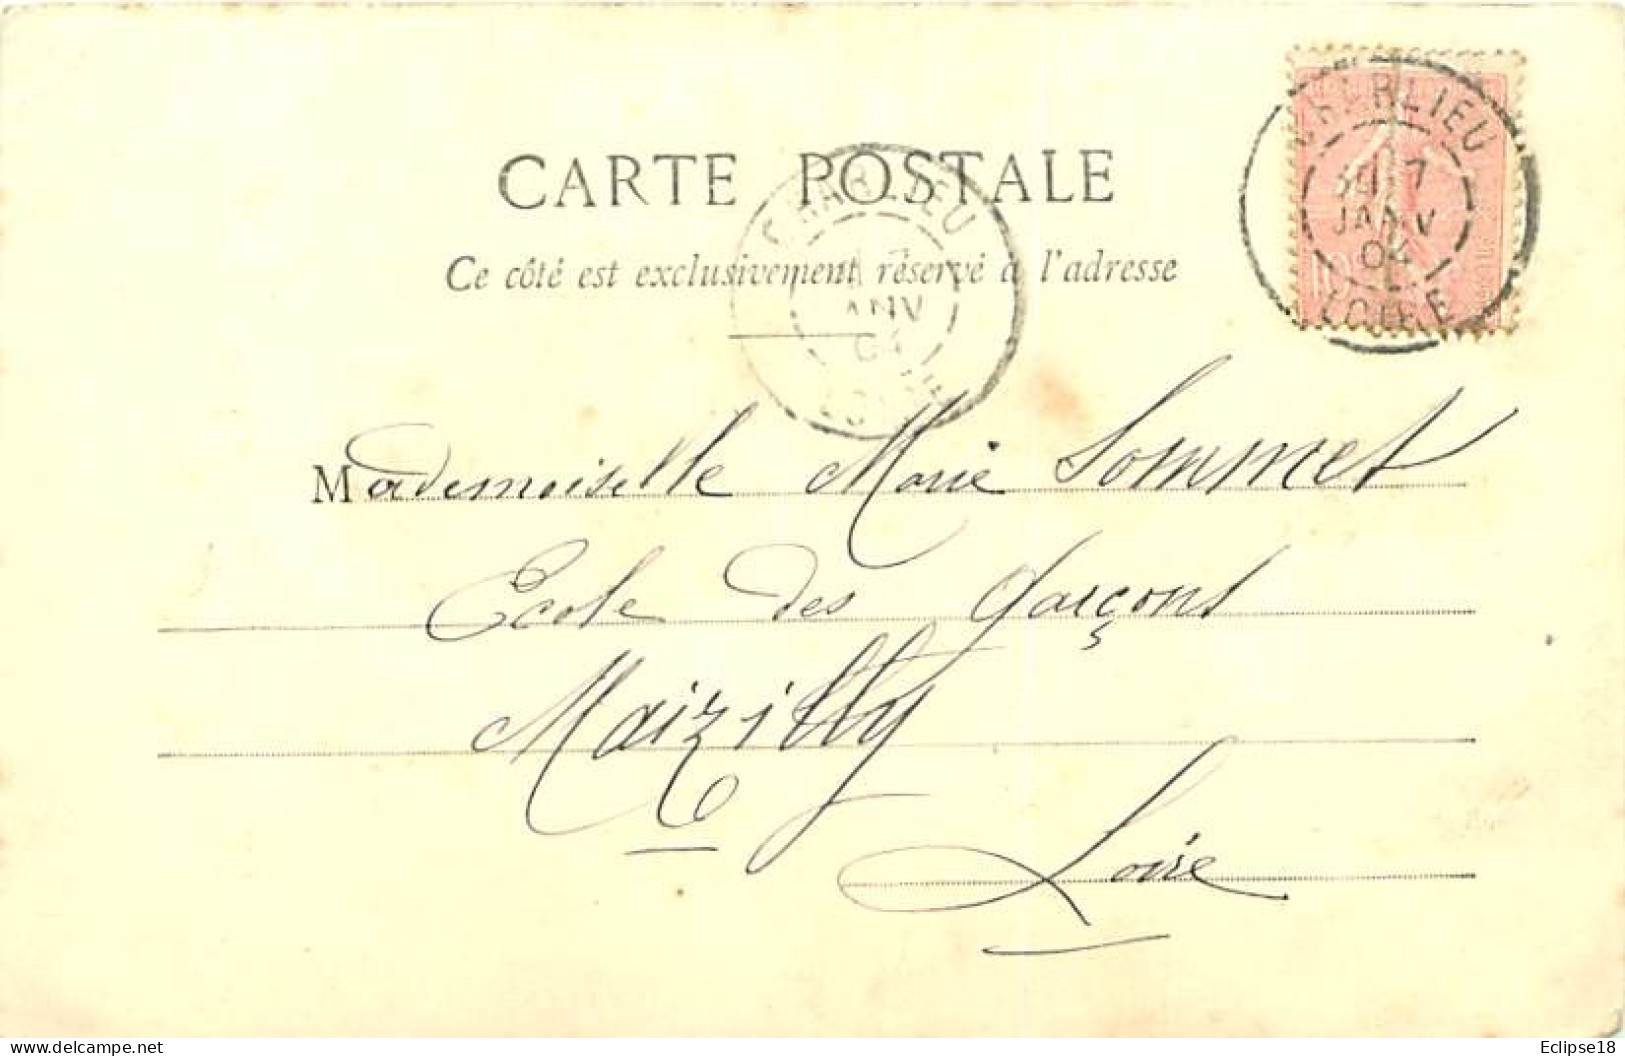 CARTE POSTALE
Ce côté est exclusivement réservé à l'adresse
CHARLIEU
JANV
04
LOIRE
CHARLIEU
ANV
04
Mademoiselle Marie Sommet
Ecole des garçons
Maizilly
Loire
Delcampe.net
Eclipse18